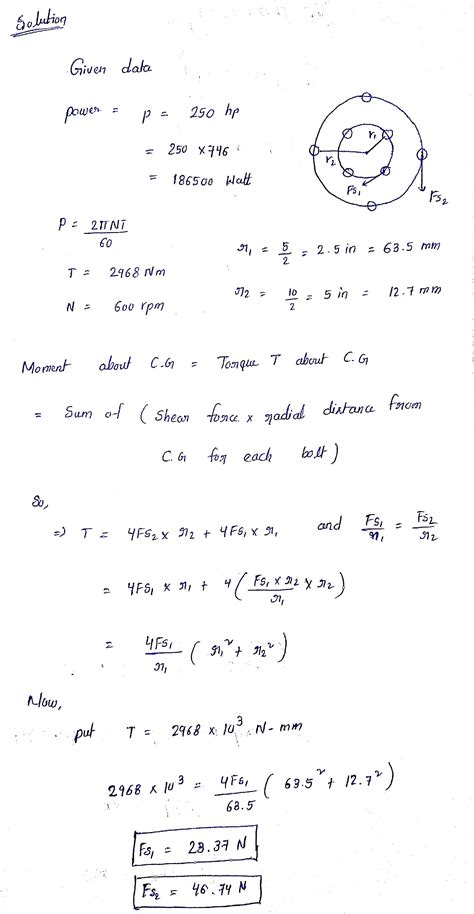 Solution
Given data
power = P = 250 hp
= 250 × 746
= 186500 Watt
r₁
r₂
Fs₁
Fs₂
P = 2πNT / 60
T = 2968 Nm
N = 600 rpm
r₁ = 5/2 = 2.5 in = 63.5 mm
r₂ = 10/2 = 5 in = 12.7 mm
Moment about C.G = Torque T about C.G
= Sum of ( Shear force × radial distance from
C.G for each bolt )
So,
⇒ T = 4Fs₂ × r₂ + 4Fs₁ × r₁ and Fs₁/r₁ = Fs₂/r₂
= 4Fs₁ × r₁ + 4 ( Fs₁ × r₂ / r₁ × r₂ )
= 4Fs₁ / r₁ ( r₁² + r₂² )
Now,
put T = 2968 × 10³ N-mm
2968 × 10³ = 4Fs₁ / 63.5 ( 63.5² + 12.7² )
Fs₁ = 23.37 N
Fs₂ = 46.74 N